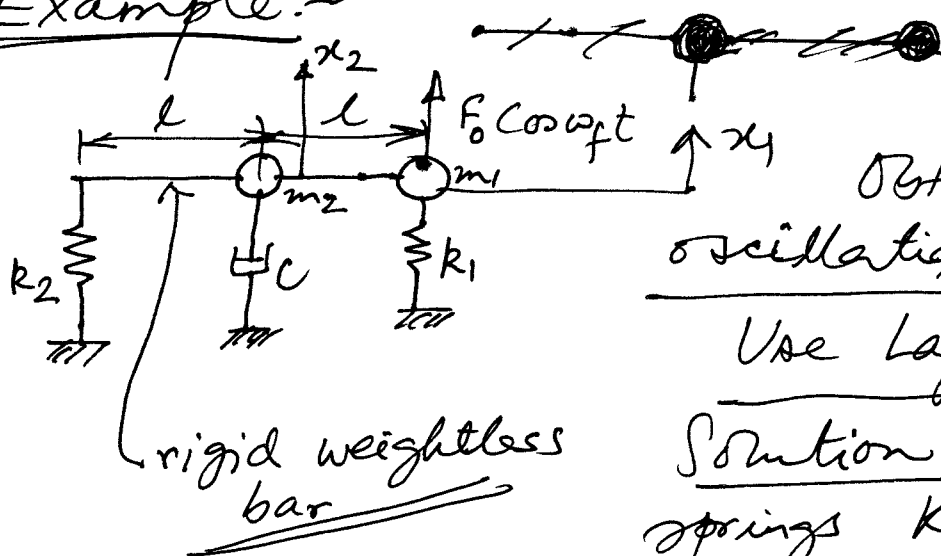 Example:-
x₂
l l F₀ Cos ω_f t
x₁
m₂ m₁
k₂ C k₁
rigid weightless
bar
Use
Solution
springs K